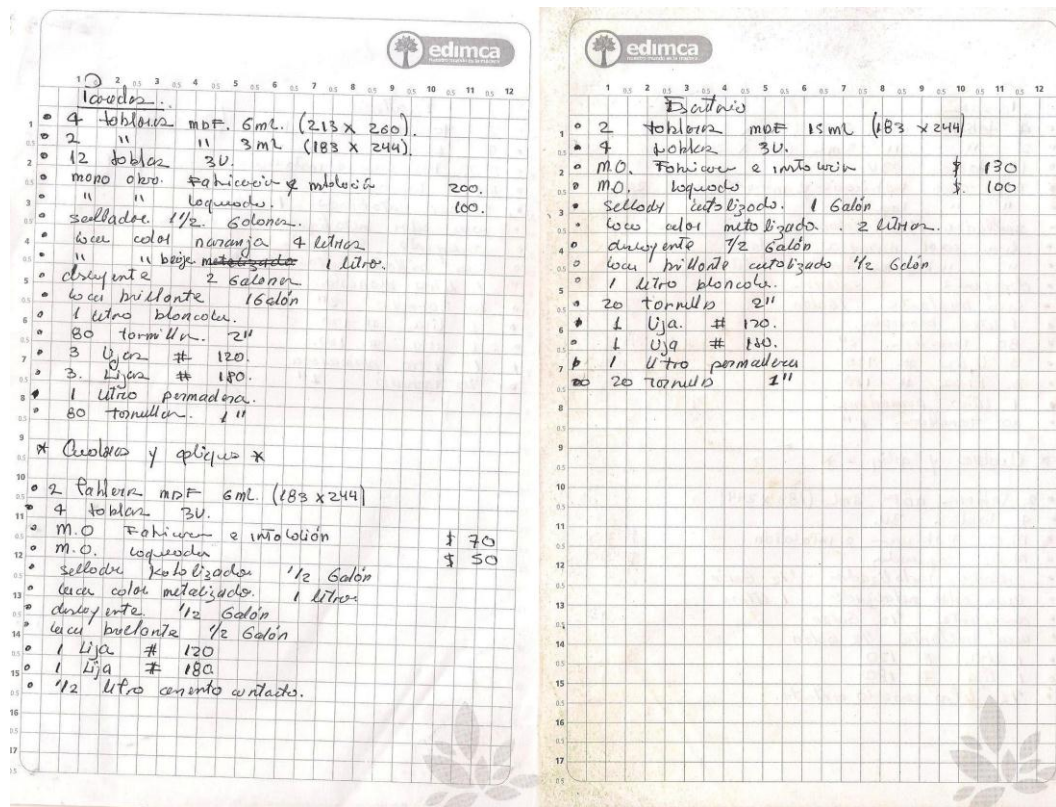 edimca
Paredes..
• 4 tableros MDF. 6ml. (213 x 260).
• 2 " " 3ml (183 x 244).
• 12 tablas 3U.
• mano obra. Fabricación e instalación 200.
• " " laqueado. 100.
• sellador. 1 1/2. Galones.
• laca color naranja 4 litros
• " " beige metalizado 1 litro.
• disuyente 2 Galones
• laca brillante 1 Galón
• 1 litro blancola.
• 80 tornillos. 2"
• 3 Lijas # 120.
• 3. Lijas # 180.
• 1 litro permadera.
• 80 tornillos. 1"
* Cuadros y apliques *
• 2 tableros MDF 6ml. (183 x 244)
• 4 tablas 3U.
• M.O Fabricación e instalación $ 70
• M.O. laqueado $ 50
• sellador katalizador 1/2 Galón
• laca color metalizado. 1 litros.
• disuyente. 1/2 Galón
• laca brillante 1/2 Galón
• 1 Lija # 120
• 1 Lija # 180
• 1/2 litro cemento contacto.
edimca
• 2 tableros MDF 15ml (183 x 244)
• 4 tablas 3U.
• M.O. Fabricar e instalación $ 130
• M.O. laqueado $. 100
• sellador catalizado. 1 Galón
• laca color metalizado. 2 litros.
• disuyente 1/2 Galón
• laca brillante catalizado 1/2 Galón
• 1 litro blancola.
• 20 tornillos 2"
• 1 Lija. # 120.
• 1 Lija # 180.
• 1 litro permadera
• 20 Tornillos 1"